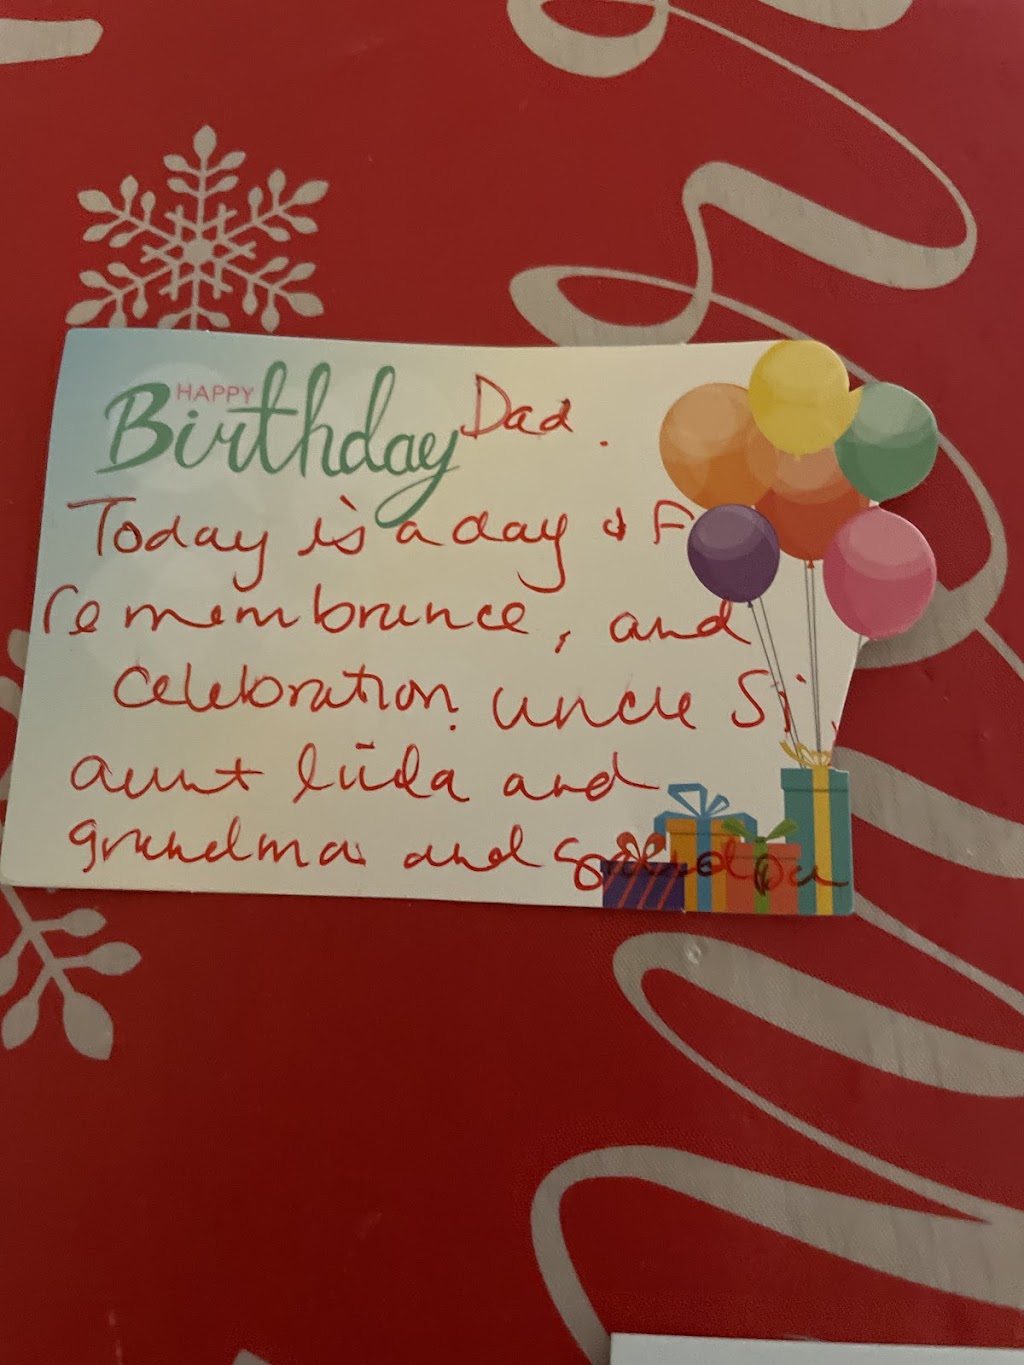 HAPPY
Birthday Dad.
Today is a day of
remembrance, and
celebration. uncle Si,
aunt liida and
grandma and grandpa